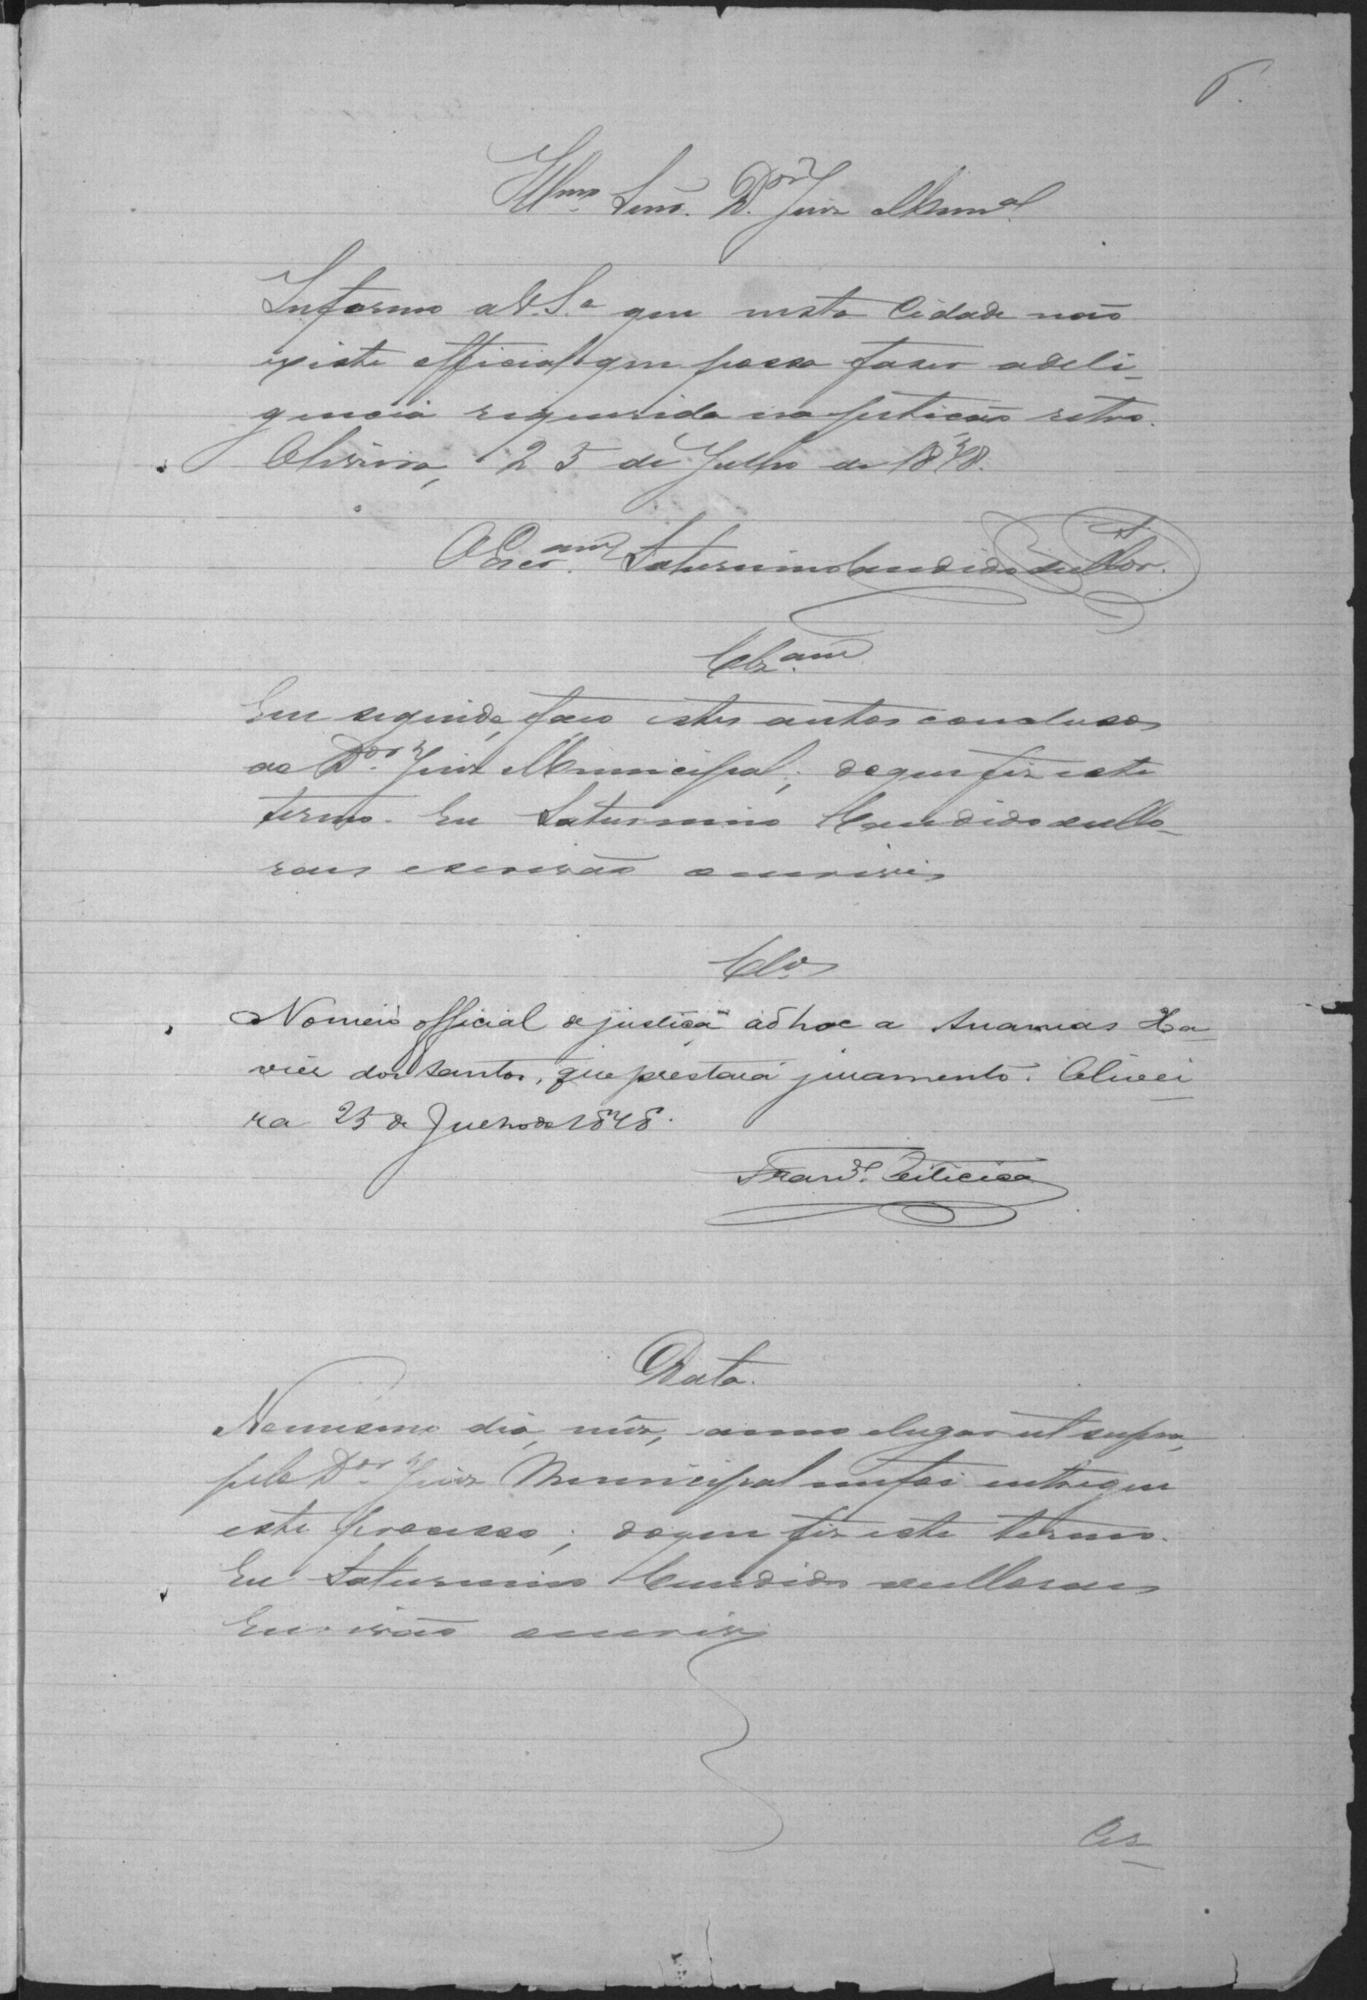 6.
Illmo Senr. Dor Juiz Munal
Informo a V. Sa que nesta Cidade não
existe official que possa faser a deli-
gencia requerida na petição retro.
Oliveira, 25 de Julho de 1878.
O Escram Saturnino Candido de Mor.
Clzam
Em seguida, faço estes autos conclusos
ao Dor Juiz Municipal; do que fiz este
termo. Eu Saturnino Candido de Mo-
raes escrivão escrivi
Clos
Nomeio official de justiça ad hoc a Ananias Xa-
vier dos Santos, que prestará juramento. Olivei
ra 25 de Julho de 1878.
Feiticisa
Data.
No mesmo dia, mez, anno e lugar ut supra,
pelo Dor Juiz Municipal me foi entregue
este processo; do que fiz este termo.
Eu Saturnino Candido de Moraes
Escrivão escrivi